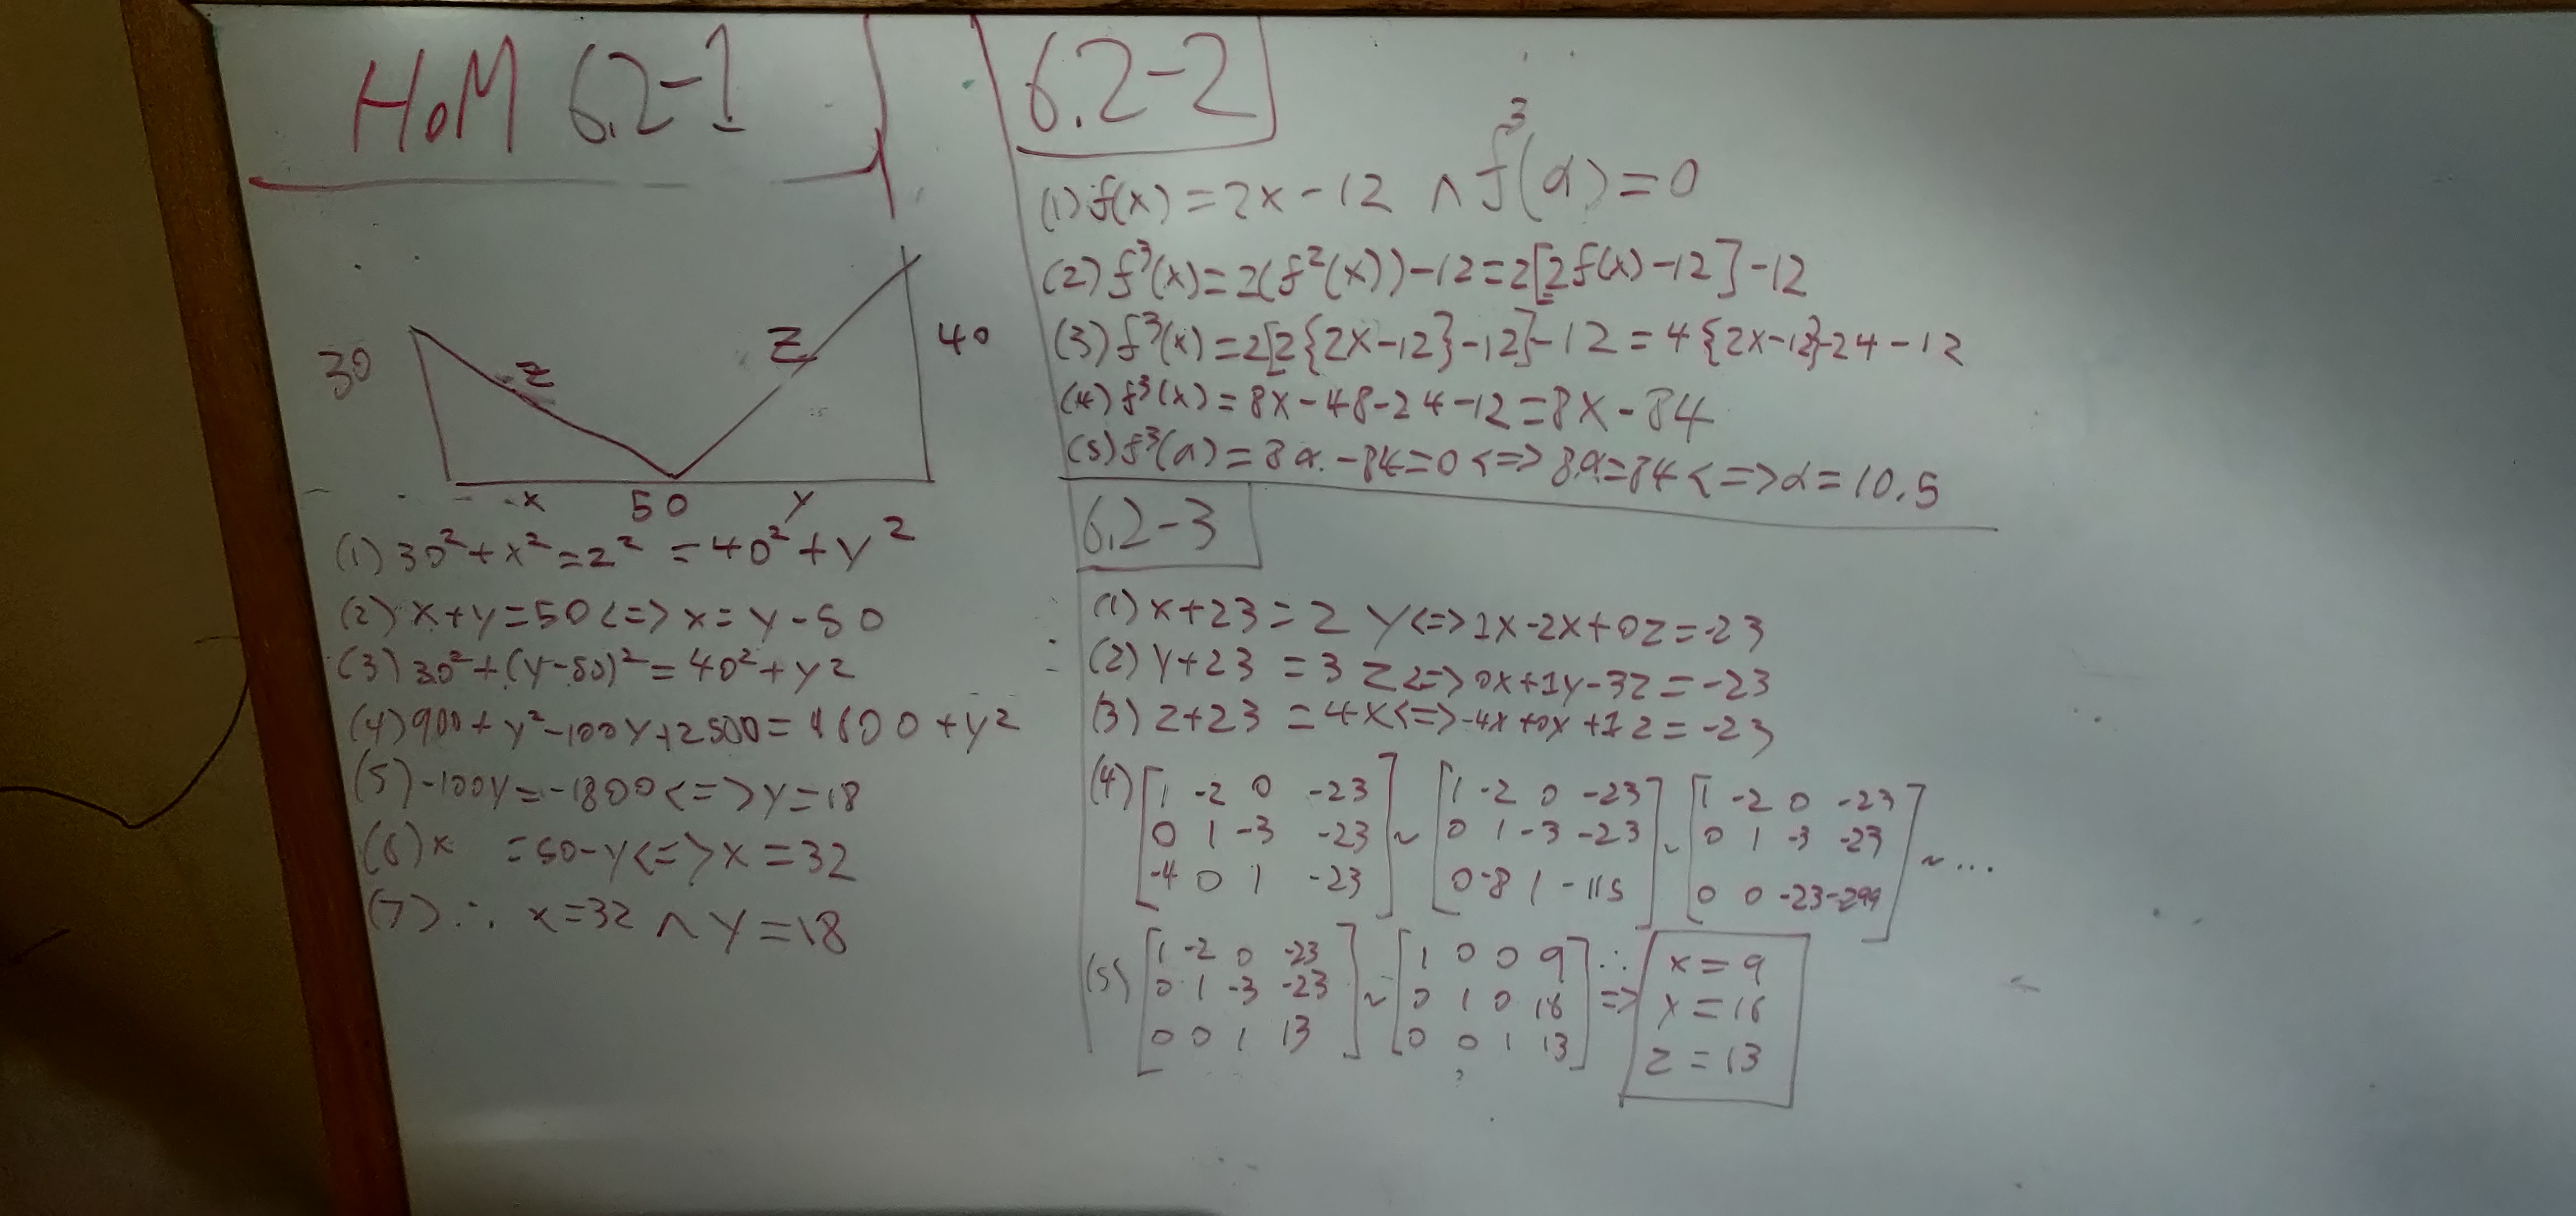 HoM 6.2-1
30
z
z
40
x
50
y
(1) 30²+x²=z²=40²+y²
(2) x+y=50<=>x=y-50
(3) 30²+(y-50)²=40²+y²
(4) 900+y²-100y+2500=1600+y²
(5) -100y=-1800<=>y=18
(6) x =50-y<=>x=32
(7) ∴ x=32 ∧ y=18
6.2-2
(1) f(x)=2x-12 ∧ f³(α)=0
(2) f³(x)=2(f²(x))-12=2[2f(x)-12]-12
(3) f³(x)=2[2{2x-12}-12]-12=4{2x-12}-24-12
(4) f³(x)=8x-48-24-12=8x-84
(5) f³(α)=8α-84=0<=>8α=84<=>α=10.5
6.2-3
(1) x+23=2y<=>1x-2x+0z=-23
(2) y+23=3z<=>0x+1y-3z=-23
(3) z+23=4x<=>-4x+0x+1z=-23
(4) [1 -2 0 -23] [1 -2 0 -23] [1 -2 0 -23]
0 1 -3 -23 ~ 0 1 -3 -23 ~ 0 1 -3 -23 ~ ...
-4 0 1 -23 0 -8 1 -115 0 0 -23 -299
(5) [1 -2 0 -23] [1 0 0 9] ∴ x=9
0 1 -3 -23 ~ 0 1 0 16 => y=16
0 0 1 13 0 0 1 13 z=13